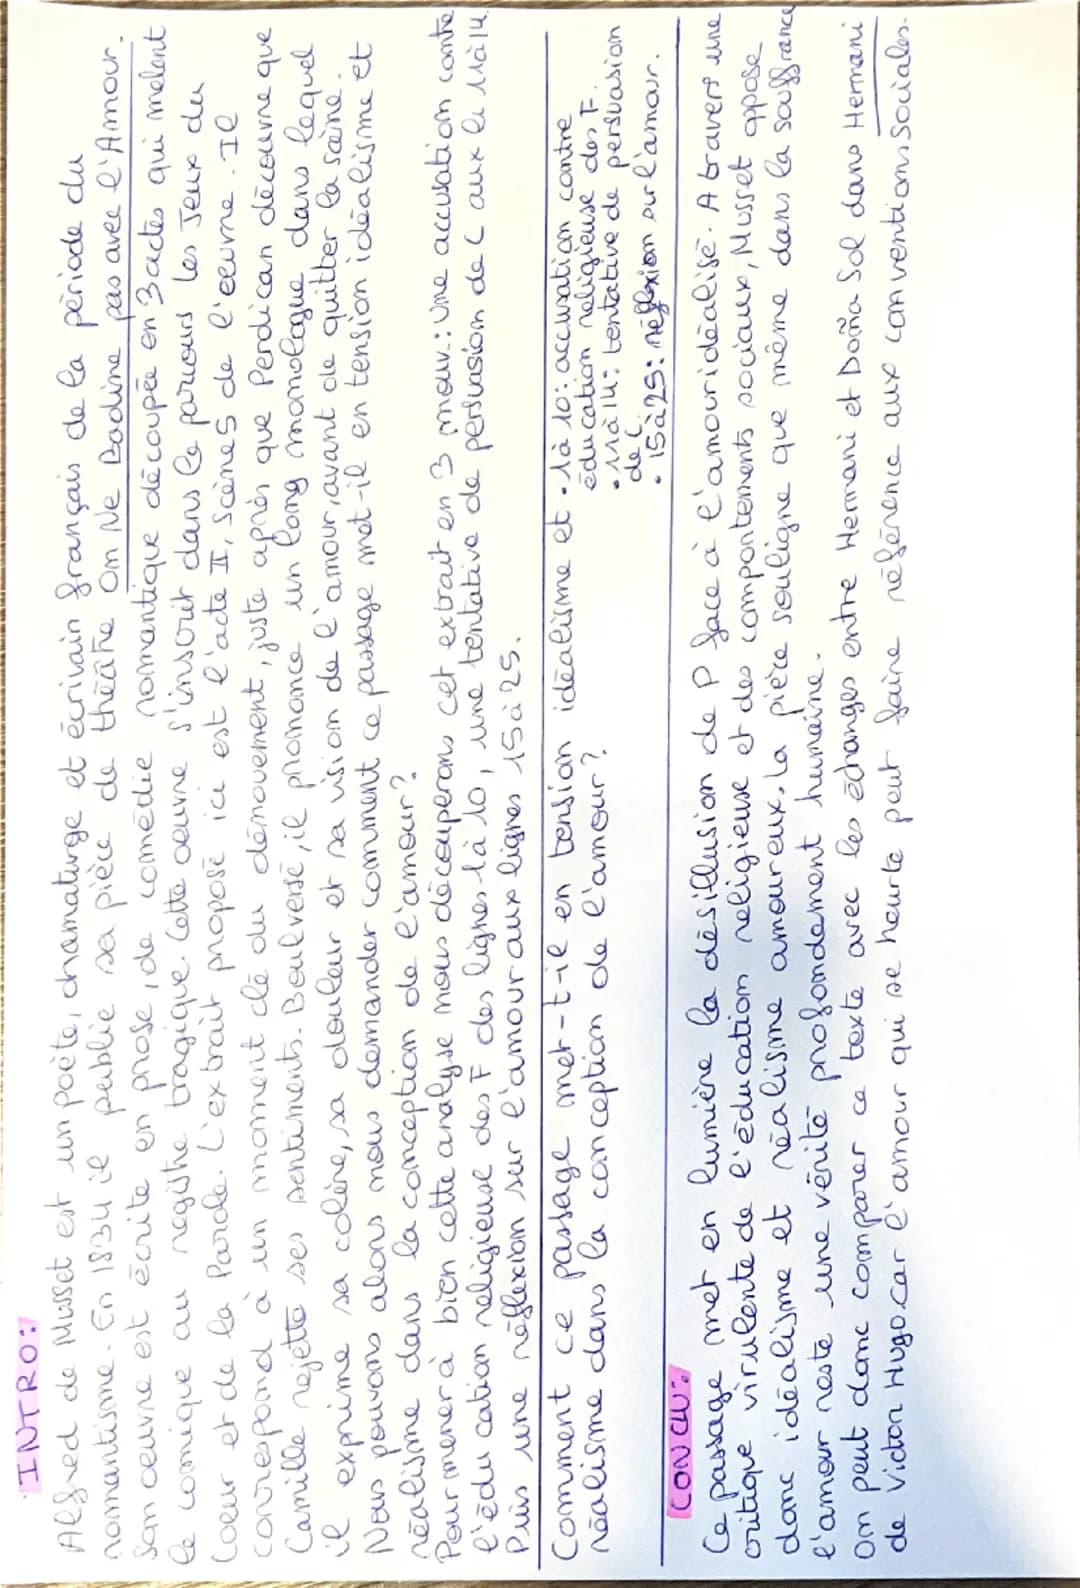 INTRO:
Alfred de Musset est un poète, dramaturge et écrivain français de la période du
romantisme. En 1834 il publie sa pièce de théâtre On Ne Badine pas avec l'Amour.
Son oeuvre est écrite en prose, de comédie romantique découpée en 3 actes qui mêlent
le comique au registre tragique. Cette oeuvre s'inscrit dans le parcours les Jeux du
Coeur et de la Parole. L'extrait proposé ici est l'acte II, scène 5 de l'oeuvre. Il
correspond à un moment clé du dénouement, juste après que Perdican découvre que
Camille rejette ses sentiments. Boulversé, il prononce un long monologue dans lequel
il exprime sa colère, sa douleur et sa vision de l'amour, avant de quitter la scène.
Nous pouvons alors nous demander comment ce passage met-il en tension idéalisme et
réalisme dans la conception de l'amour?
Pour mener à bien cette analyse nous découperons cet extrait en 3 mouv.: Une accusation contre
l'éducation religieuse des F des lignes 1 à 10, une tentative de persuasion de C aux li 11 à 14.
Puis une réflexion sur l'amour aux lignes 15 à 25.
Comment ce passage met-t-il en tension idéalisme et
réalisme dans la conception de l'amour?
• 1 à 10: accusation contre
éducation religieuse des F.
• 11 à 14: tentative de persuasion
de C
• 15 à 25: réflexion sur l'amour.
CONCLU:
Ce passage met en lumière la désillusion de P face à l'amour idéalisé. A travers une
critique virulente de l'éducation religieuse et des comportements sociaux, Musset oppose
donc idéalisme et réalisme amoureux. La pièce souligne que même dans la souffrance
l'amour reste une vérité profondément humaine.
On peut donc comparer ce texte avec les échanges entre Hernani et Doña Sol dans Hernani
de Victor Hugo car l'amour qui se heurte peut faire référence aux conventions sociales.